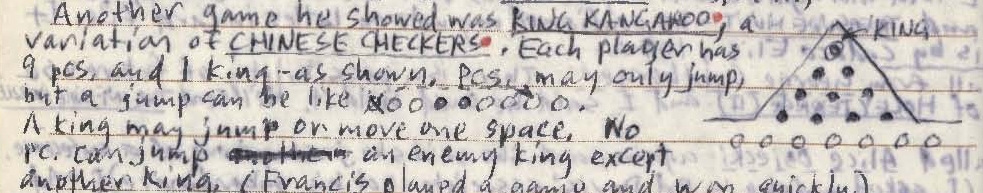 Another game he showed was KING KANGAROO, a
variation of CHINESE CHECKERS. Each player has
KING
9 pcs, and 1 king - as shown. Pcs. may only jump,
but a jump can be like xoo••oooo.
A king may jump or move one space. No
pc. can jump another an enemy king except
another king. (Francis played a game and won quickly)